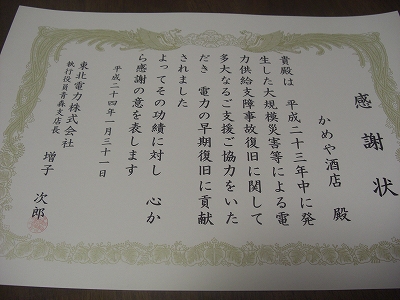 感謝状
かめや酒店 殿
貴殿は 平成二十三年中に発
生した大規模災害等による電
力供給支障事故復旧に関して
多大なるご支援ご協力をいた
だき 電力の早期復旧に貢献
されました
よってその功績に対し 心か
ら感謝の意を表します
平成二十四年一月三十一日
東北電力株式会社
執行役員青森支店長 増子 次郎